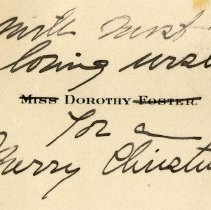 With most
loving wishes
Miss Dorothy Foster.
For a
Merry Christm